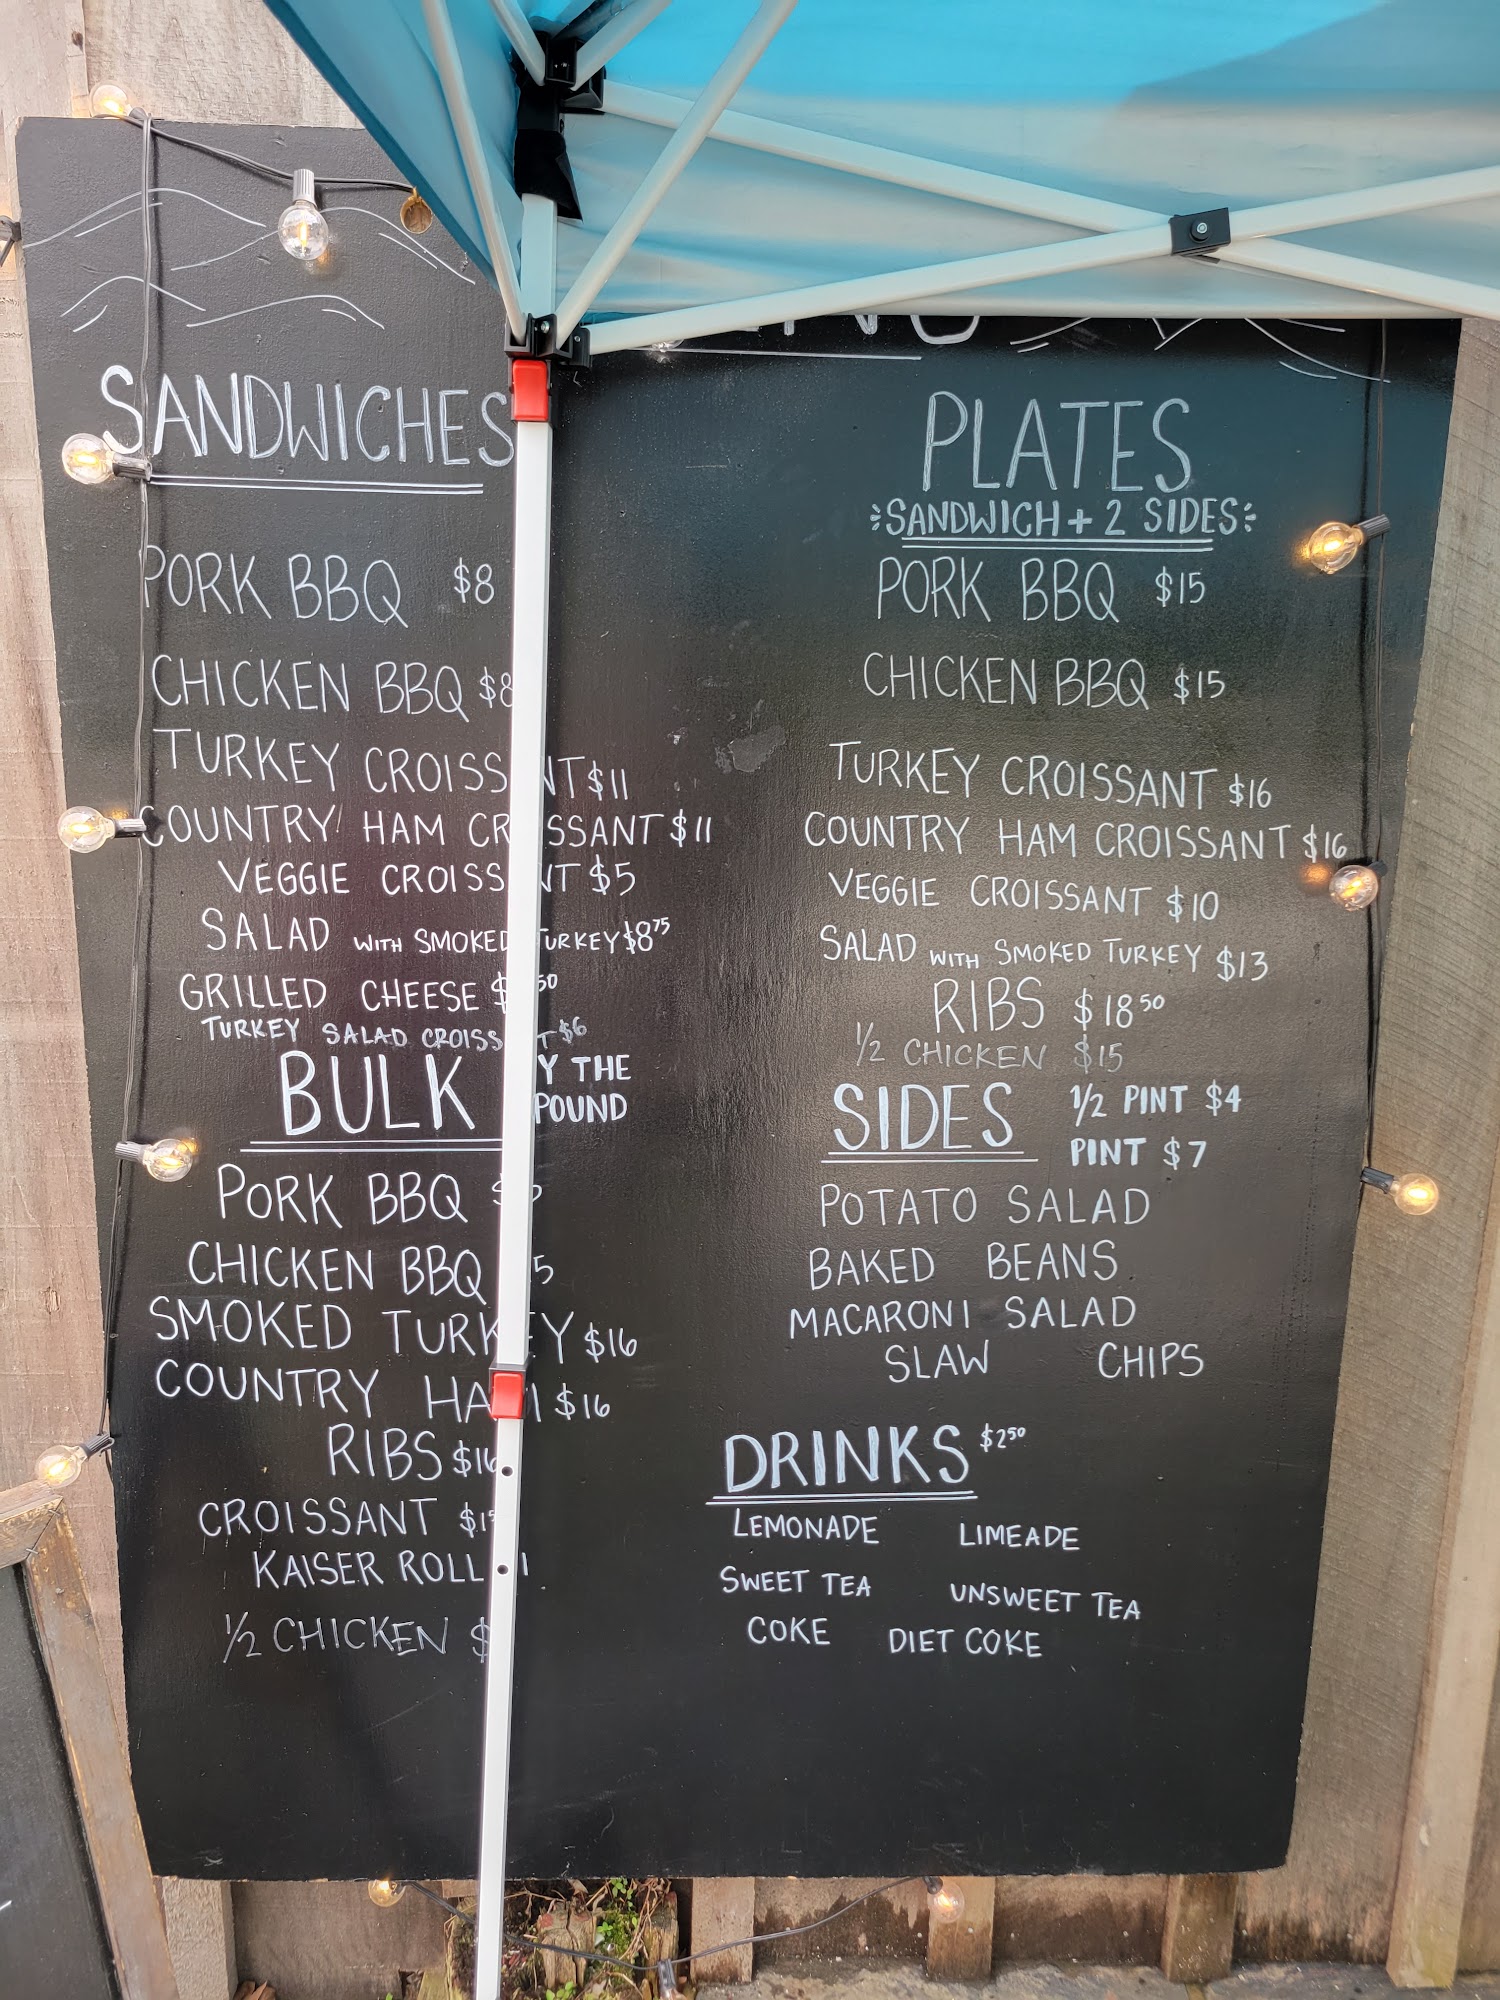 SANDWICHES
PORK BBQ $8
CHICKEN BBQ $8
TURKEY $11
COUNTRY HAM $11
VEGGIE $5
SALAD WITH SMOKED $8 75
GRILLED CHEESE
TURKEY SALAD $6
BULK THE
POUND
PORK BBQ
CHICKEN BBQ
SMOKED $16
COUNTRY $16
RIBS
CROISSANT
KAISER ROLL
1/2 CHICKEN
PLATES
SANDWICH + 2 SIDES
PORK BBQ $15
CHICKEN BBQ $15
TURKEY CROISSANT $16
COUNTRY HAM CROISSANT $16
VEGGIE CROISSANT $10
SALAD WITH SMOKED TURKEY $13
RIBS $18 50
1/2 CHICKEN $15
SIDES 1/2 PINT $4
PINT $7
POTATO SALAD
BAKED BEANS
MACARONI SALAD
SLAW CHIPS
DRINKS $2 50
LEMONADE LIMEADE
SWEET TEA UNSWEET TEA
COKE DIET COKE